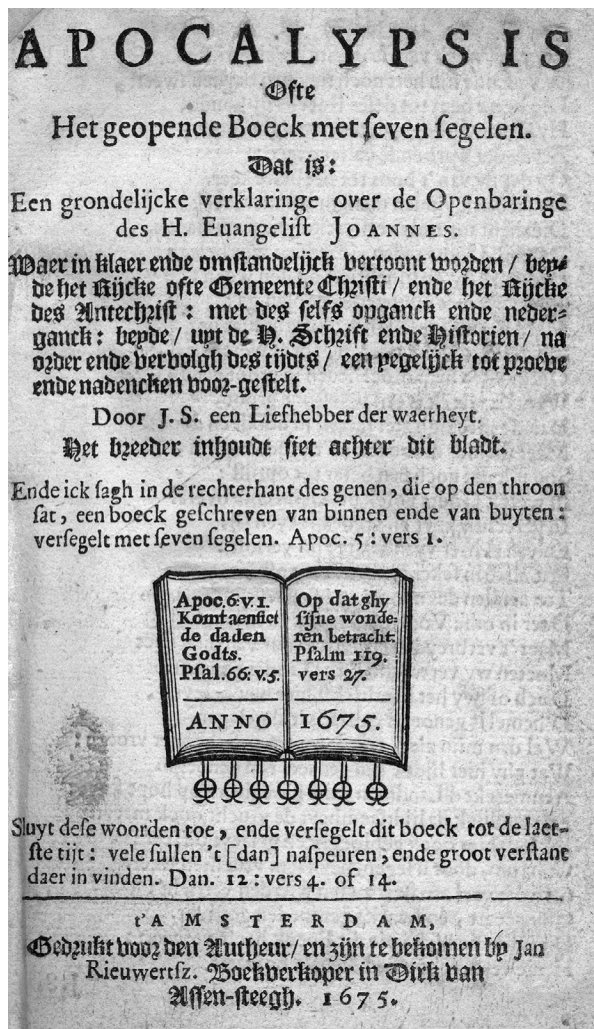 APOCALYPSIS
Ofte
Het geopende Boeck met ſeven ſegelen.
Dat is:
Een grondelijcke verklaringe over de Openbaringe
des H. Euangeliſt JOANNES.
Waer in klaer ende omſtandelijck vertoont worden / bey-
de het Rijcke ofte Gemeente Chriſti / ende het Rijcke
des Antechriſt : met des ſelfs opganck ende neder-
ganck : beyde / uyt de H. Schrift ende Hiſtorien / na
order ende vervolgh des tijdts / een yegelijck tot proeve
ende nadencken voor-geſtelt.
Door J. S. een Liefhebber der waerheyt.
Het breeder inhoudt ſiet achter dit bladt.
Ende ick ſagh in de rechterhant des genen, die op den throon
ſat, een boeck geſchreven van binnen ende van buyten :
verſegelt met ſeven ſegelen. Apoc. 5 : vers 1.
Apoc. 6: v. 1.
Komt aenſiet
de daden
Godts.
Pſal. 66: v. 5.
ANNO
Op dat ghy
ſijne wonde-
ren betracht:
Pſalm 119.
vers 27.
1675.
Sluyt deſe woorden toe, ende verſegelt dit boeck tot de laet-
ſte tijt : vele ſullen 't [dan] naſpeuren, ende groot verſtant
daer in vinden. Dan. 12 : vers 4. of 14.
t'AMSTERDAM,
Gedrukt voor den Autheur/ en zijn te bekomen by Jan
Rieuwertsz. Boekverkoper in Dirk van
Aſſen-ſteegh. 1675.